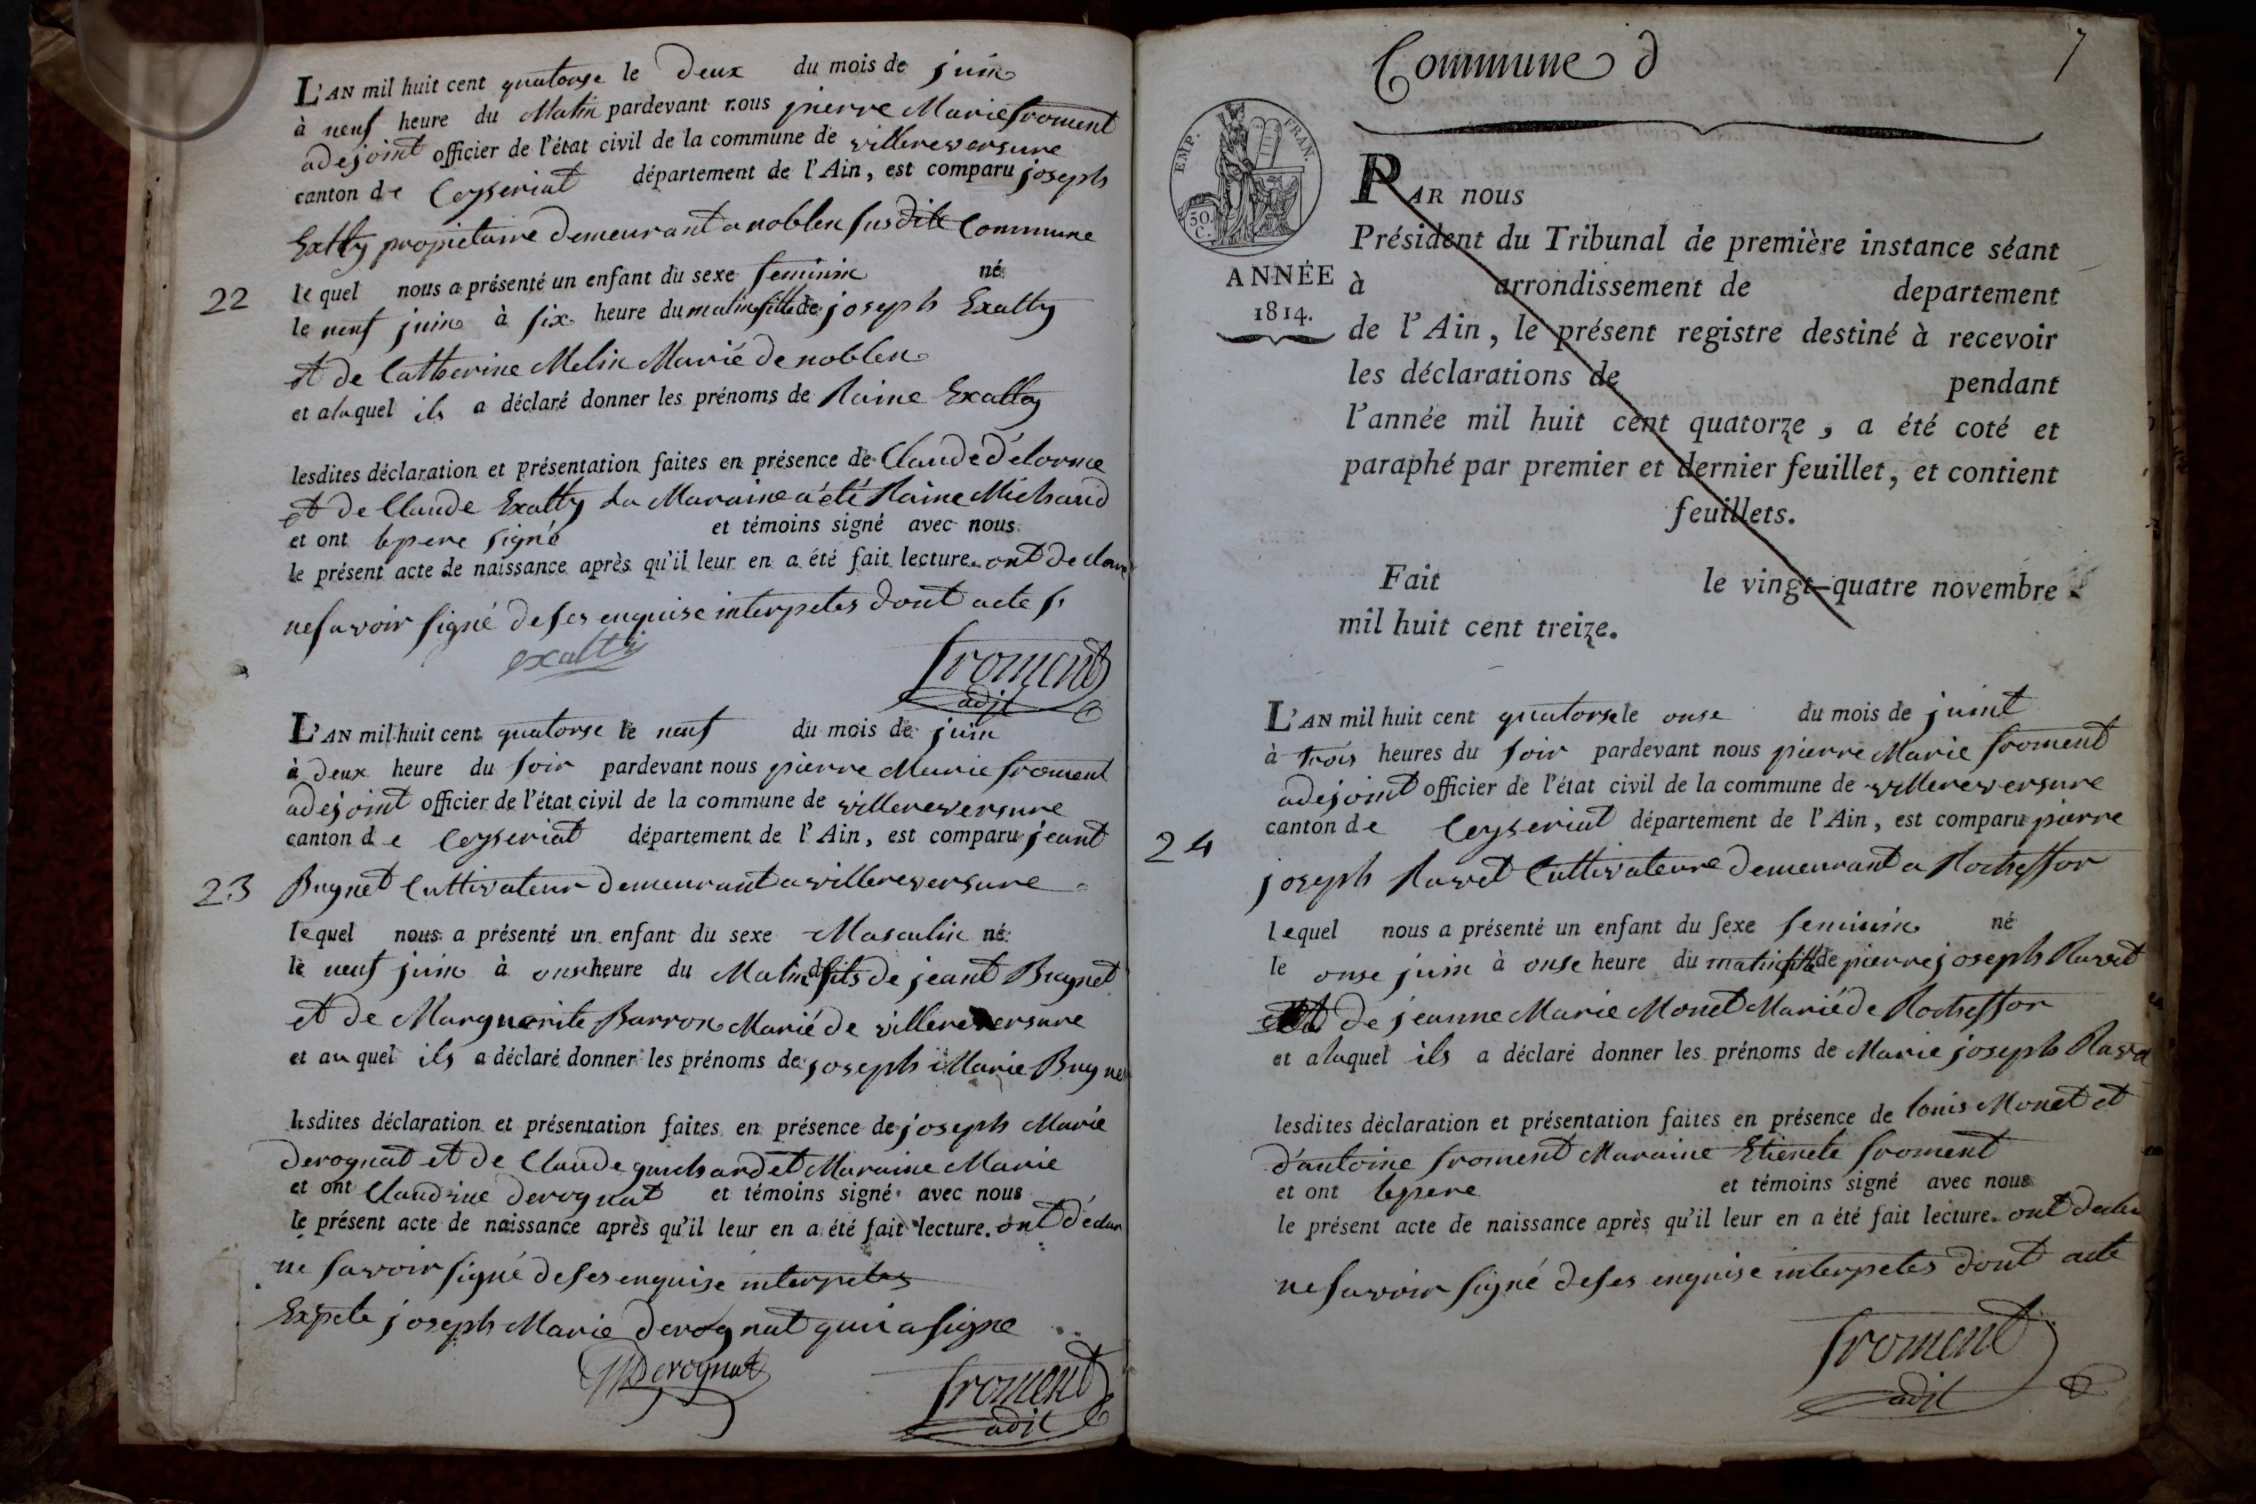 L'AN mil huit cent quatorse le deux du mois de juin
à neuf heure du Matin pardevant nous pierre Marie froment
adejoint officier de l'état civil de la commune de villereversure
canton de Ceyseriat département de l'Ain, est comparu joseph
Exalty propietaire demeurant a noblen susdite Commune
22
lequel nous a présenté un enfant du sexe feminin né
le neuf juin à six heure du matin fille de joseph Exalty
et de Catherine Melin Marié de noblen
et alaquel ils a déclaré donner les prénoms de Raine Exalty
lesdites déclaration et présentation faites en présence de Claude délorme
et de Claude Exalty La Maraine a été Raine Michaud
et ont lepere signé et témoins signé avec nous
le présent acte de naissance après qu'il leur en a été fait lecture. ont de clare
ne savoir signé de ses enquise interpetes dont acte
exalty
froment
adjt
L'AN mil huit cent quatorse le neuf du mois de juin
à deux heure du soir pardevant nous pierre Marie froment
adejoint officier de l'état civil de la commune de villereversure
canton de Ceyseriat département de l'Ain, est comparu jeant
23
Bugnet Cultivateur demeurant a villereversure
lequel nous a présenté un enfant du sexe Masculin né
le neuf juin à onse heure du Matin fils de jeant Bugnet
et de Marguerite Barron Marié de villereversure
et au quel ils a déclaré donner les prénoms de joseph Marie Bugne
lesdites déclaration et présentation faites en présence de joseph Marie
derognat et de Claude guichardet Maraine Marie
et ont Claudine derognat et témoins signé avec nous
le présent acte de naissance après qu'il leur en a été fait lecture. ont déclar
ne savoir signé de ses enquise interpetes
Expete joseph Marie derognat qui a signe
Derognat
froment
adjt
Commune d
7
EMP. FRAN.
50 C.
ANNÉE
1814.
PAR nous
Président du Tribunal de première instance séant
à arrondissement de departement
de l'Ain, le présent registre destiné à recevoir
les déclarations de pendant
l'année mil huit cent quatorze, a été coté et
paraphé par premier et dernier feuillet, et contient
feuillets.
Fait le vingt-quatre novembre
mil huit cent treize.
L'AN mil huit cent quatorse le onse du mois de juint
à trois heures du soir pardevant nous pierre Marie froment
adejoint officier de l'état civil de la commune de villereversure
canton de Ceyseriat département de l'Ain, est comparu pierre
24
joseph Ravet Cultivateure demeurant a Rocheffor
lequel nous a présenté un enfant du sexe feminin né
le onse juin à onse heure du matin fille de pierre joseph Ravet
de jeanne Marie Monet Marié de Rocheffor
et alaquel ils a déclaré donner les prénoms de Marie joseph Rava
lesdites déclaration et présentation faites en présence de louis Monet et
d'antoine froment Maraine Etienete froment
et ont lepere et témoins signé avec nous
le présent acte de naissance après qu'il leur en a été fait lecture. ont declar
ne savoir signé de ses enquise interpetes dont acte
froment
adjt